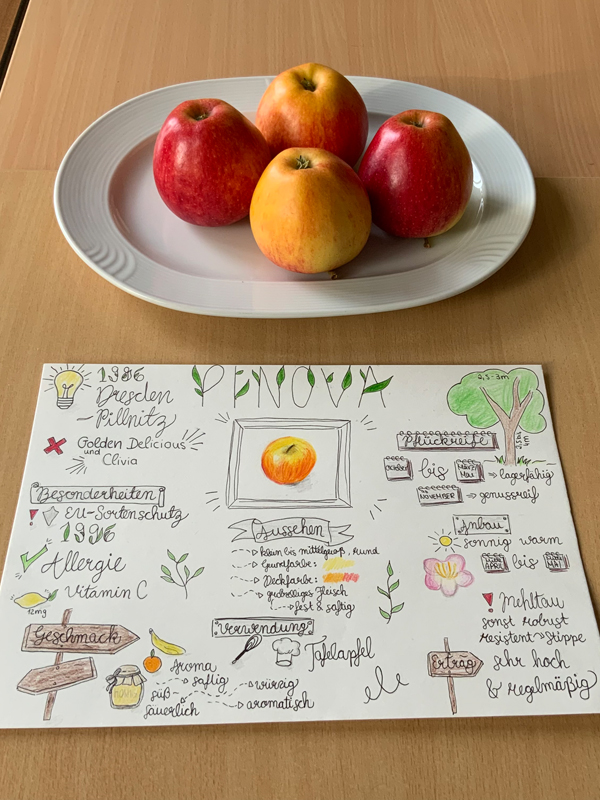 PENOVA
1986
Dresden
-Pillnitz
Golden Delicious
und
Clivia
Besonderheiten
EU-Sortenschutz
1996
Allergie
Vitamin C
12mg
Geschmack
HONIG
Aroma
saftig
süß-
säuerlich
würzig
aromatisch
Aussehen
klein bis mittelgroß, rund
Grundfarbe:
Deckfarbe:
grobzelliges Fleisch
fest & saftig
Verwendung
Tafelapfel
2,5-3m
Pflückreife
OKTOBER bis MÄRZ/MAI ⇒ lagerfähig
NOVEMBER ⇒ genussreif
Anbau
sonnig warm
APRIL bis MAI
Mehltau
sonst robust
resistent
Ertrag
sehr hoch
& regelmäßig